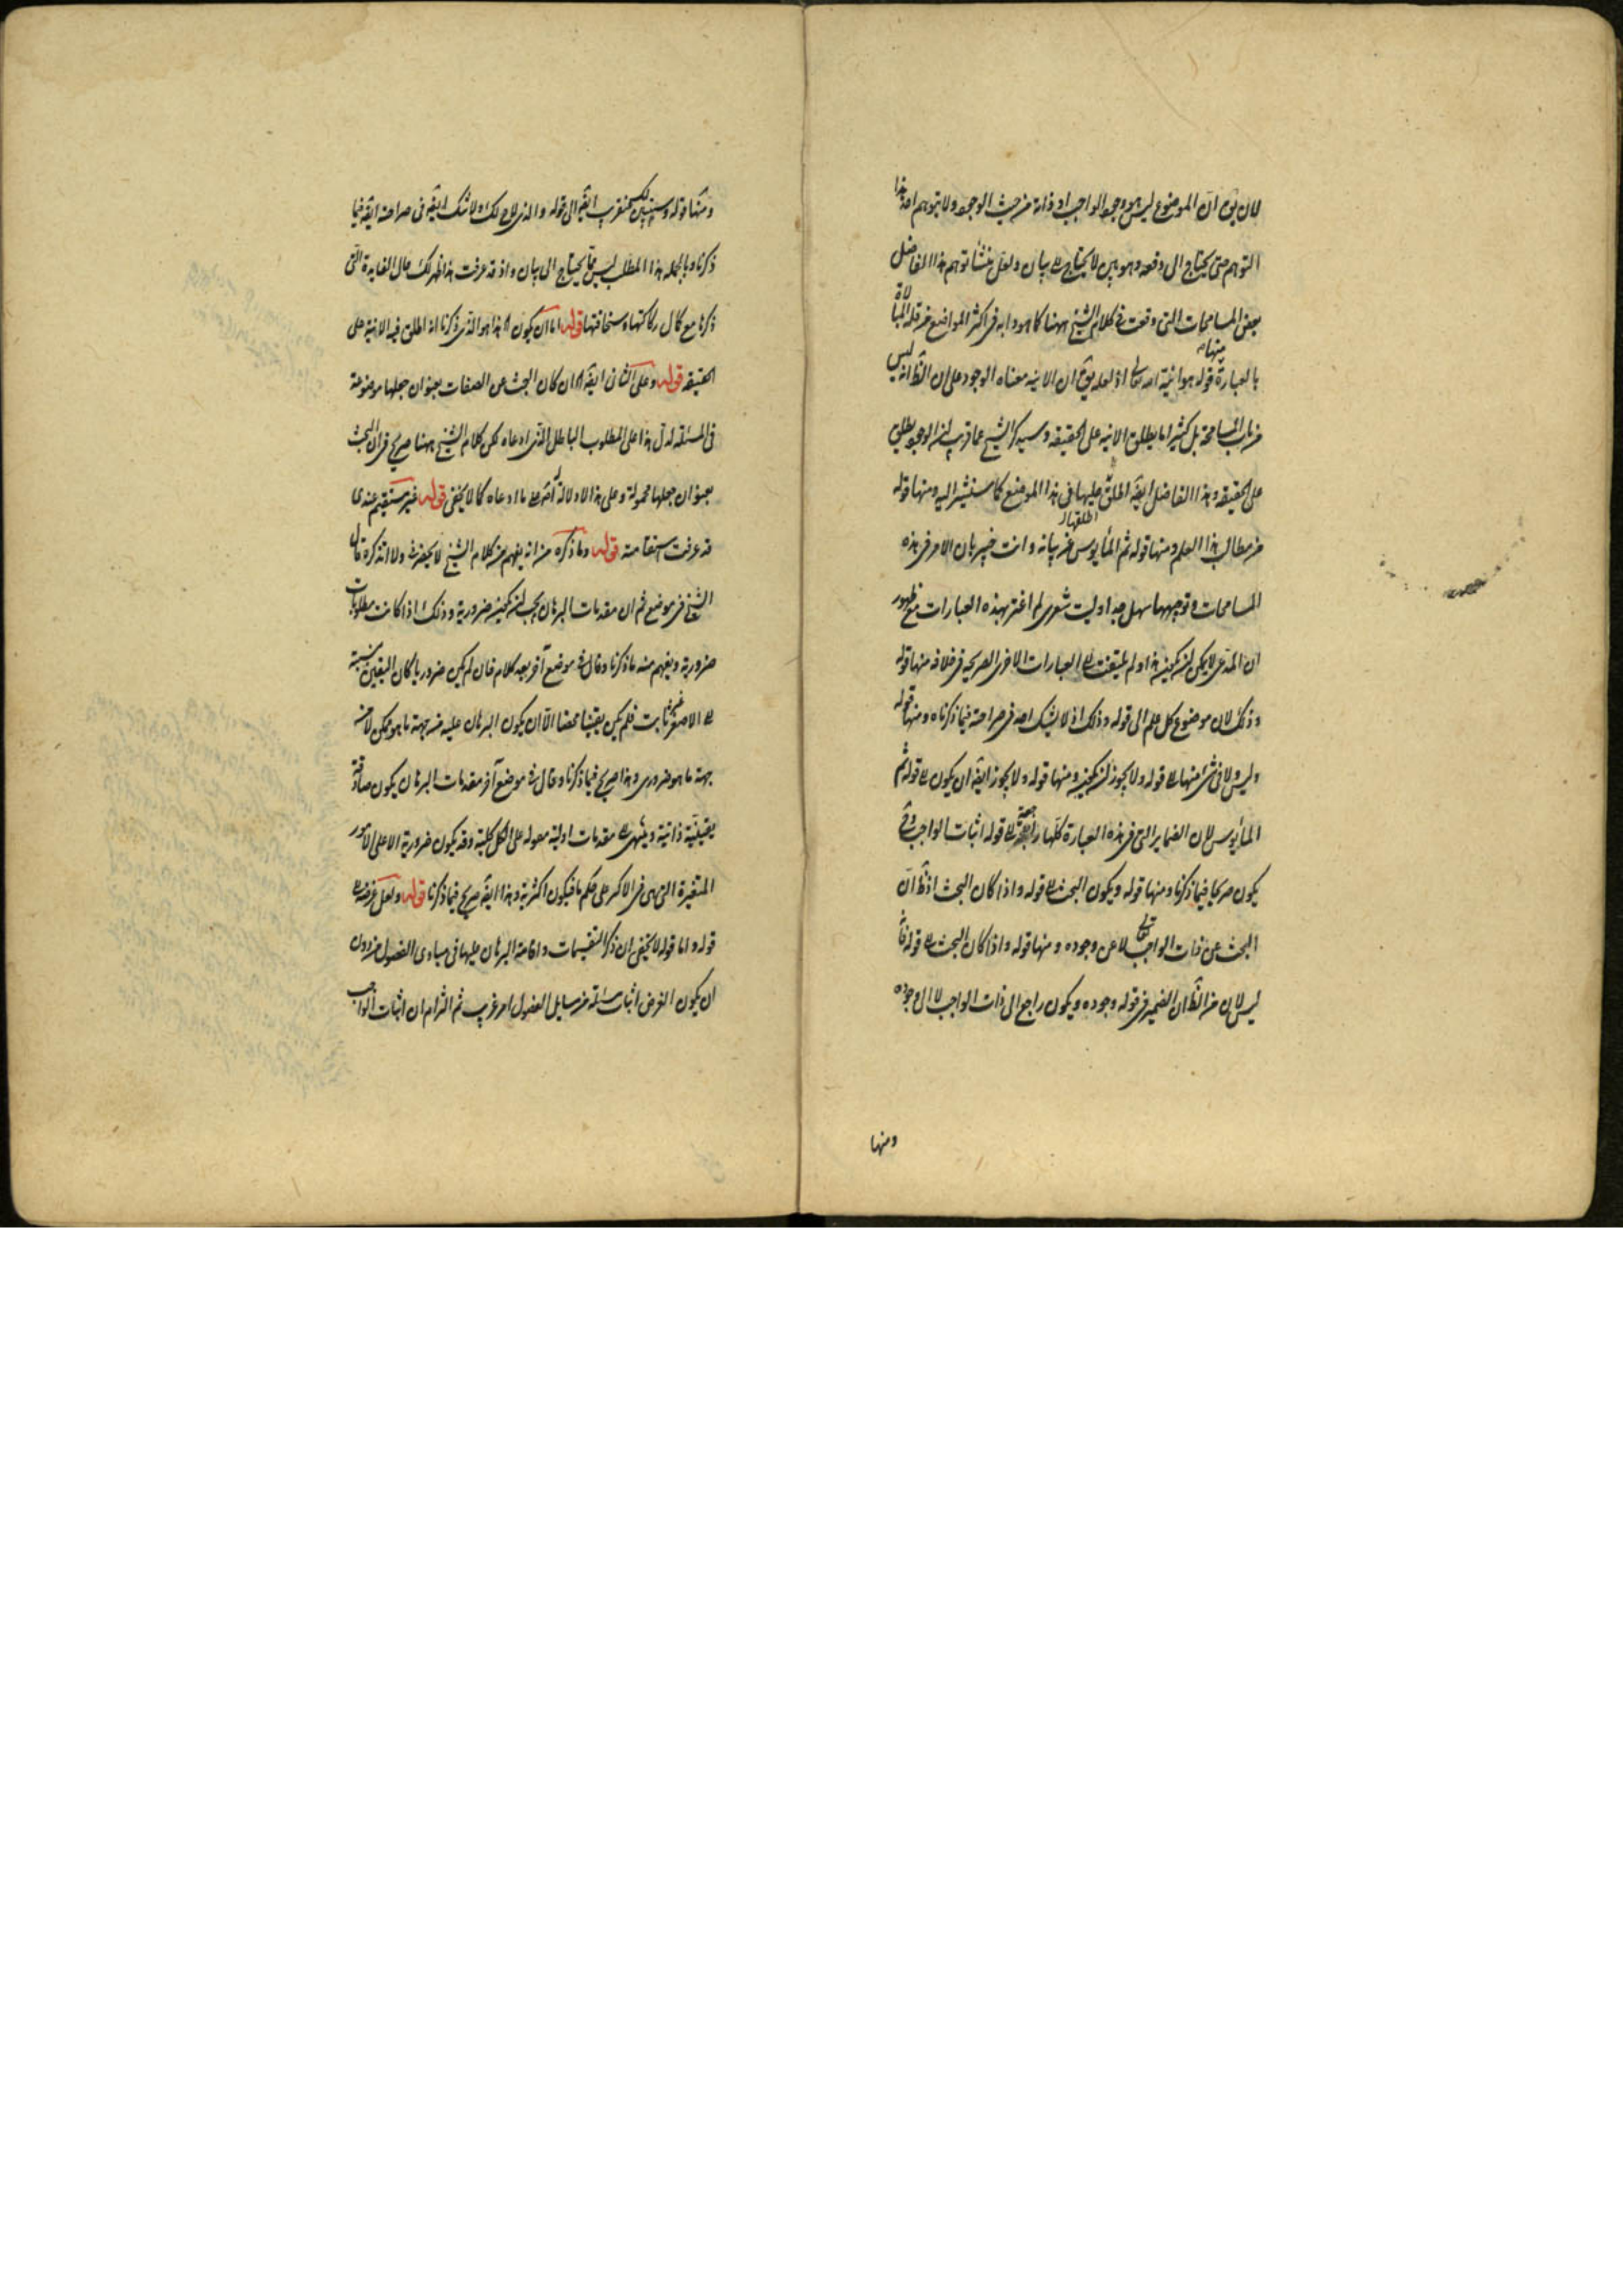 لان يق ان الموضوع ليس هو وجود الواجب او ذاته من حيث الوجود ولا يتوهم احد هذا
التوهم حتى يحتاج الى دفعه وهو بين لا يحتاج الى بيان ولعل منشأ توهم هذا الفاضل
بعض المسامحات التى وقعت فى كلام الشيخ ههنا كما هو دابه فى اكثر المواضع من قلة المبالاة
بالعبارة منها قوله هو انية الله تعالى اذ لعله يق ان الانيه معناه الوجود على ان الظ انه ليس
من باب المسامحة بل كثيرا ما يطلق الانيه على الحقيقه وسيذكر الشيخ عما قريب ان الوجود يطلق
على الحقيقه وهذا الفاضل ايضه اطلق عليها فى هذا الموضع كما سنشير اليه ومنها قوله
من مطالب هذا العلم ومنها قوله ثم المأيوس من بيانه وانت خبير بان الامر فى هذه
المسامحات وتوجيهها سهل جدا وليت شعرى لم اغتر بهذه العبارات مع ظهور
ان المدعى لا يمكن ان يكون هذا ولم يلتفت الى العبارات الاخرى الصريحه فى خلافه منها قوله
وذلك لان موضوع كل علم الى قوله وذلك اذ لا يشك احد فى صراحته فيما ذكرناه ومنها قوله
وليس ولا فى شئ منها الى قوله ولا يجوز ان يكون ومنها قوله ولا يجوز ايضه ان يكون الى قوله ثم
المأيوس لان الضماير التى فى هذه العبارة كلها راجعة الى قوله اثبات الواجب
يكون صريحا فيما ذكرنا ومنها قوله ويكون البحث الى قوله واذا كان البحث اذ ظ ان
البحث عن ذات الواجب تعالى لا عن وجوده ومنها قوله واذا كان البحث الى قوله
ليس لان من الظ ان الضمير فى قوله وجوده ويكون راجع الى ذات الواجب لا الى وجوده
ومنها
ومنها قوله وسنبين لك عن قريب ايضه الى قوله والذى لاح لك ولا شك ايضه فى صراحته ايضه فيما
ذكرنا وبالجمله هذا المطلب ليس مما يحتاج الى بيان واذ قد عرفت هذا ظهر لك حال الفايدة التى
ذكرها مع كمال ركاكتها وسخافتها قوله اما ان يكون هذا هو الذى ذكرنا انه اطلق فيه الانية على
الحقيقه قوله وعلى الثانى ايضه ان كان البحث عن الصفات بعنوان جعلها موضوعة
فى المسئله لدل هذا على المطلوب الباطل الذى ادعاه لكن كلام الشيخ ههنا صريح فى ان البحث
بعنوان جعلها محمولة وعلى هذا لا دلالة له على ما ادعاه كما لا يخفى قوله غير مستقيم عندى
قد عرفت استقامته قوله وما ذكره من انه يفهم من كلام الشيخ لا يحضرنى ولا اتذكره قال
الشيخ فى موضع ثم ان مقدمات البرهان يجب ان يكون ضرورية وذلك اذا كانت مطلوبات
ضرورية ويفهم منه ما ذكرنا وقال فى موضع آخر بعيد كلام فان لم يكن ضروريا كان اليقين بنسبته
الى الاصغر غير ثابت فلم يكن يقينا محضا الا ان يكون البرهان عليه من جهة ما هو ممكن لا من
جهة ما هو ضرورى وهذا صريح فيما ذكرنا وقال فى موضع آخر مقدمات البرهان يكون صادقة
يقينية ذاتية وينتهى الى مقدمات اولية مقولة على الكل كلية وقد يكون ضرورية الا على الامور
المتغيرة التى هى فى الاكثر على حكم ما فيكون اكثرية وهذا ايضه صريح فيما ذكرنا قوله ولعل غرضه
قوله واما قوله لا يخفى ان ذكر التقسيمات واقامة البرهان عليها فى مبادى الفصول من دون
ان يكون الغرض اثبات مسئلة من مسايل الفصول امر غريب ثم التزام ان اثبات الواجب